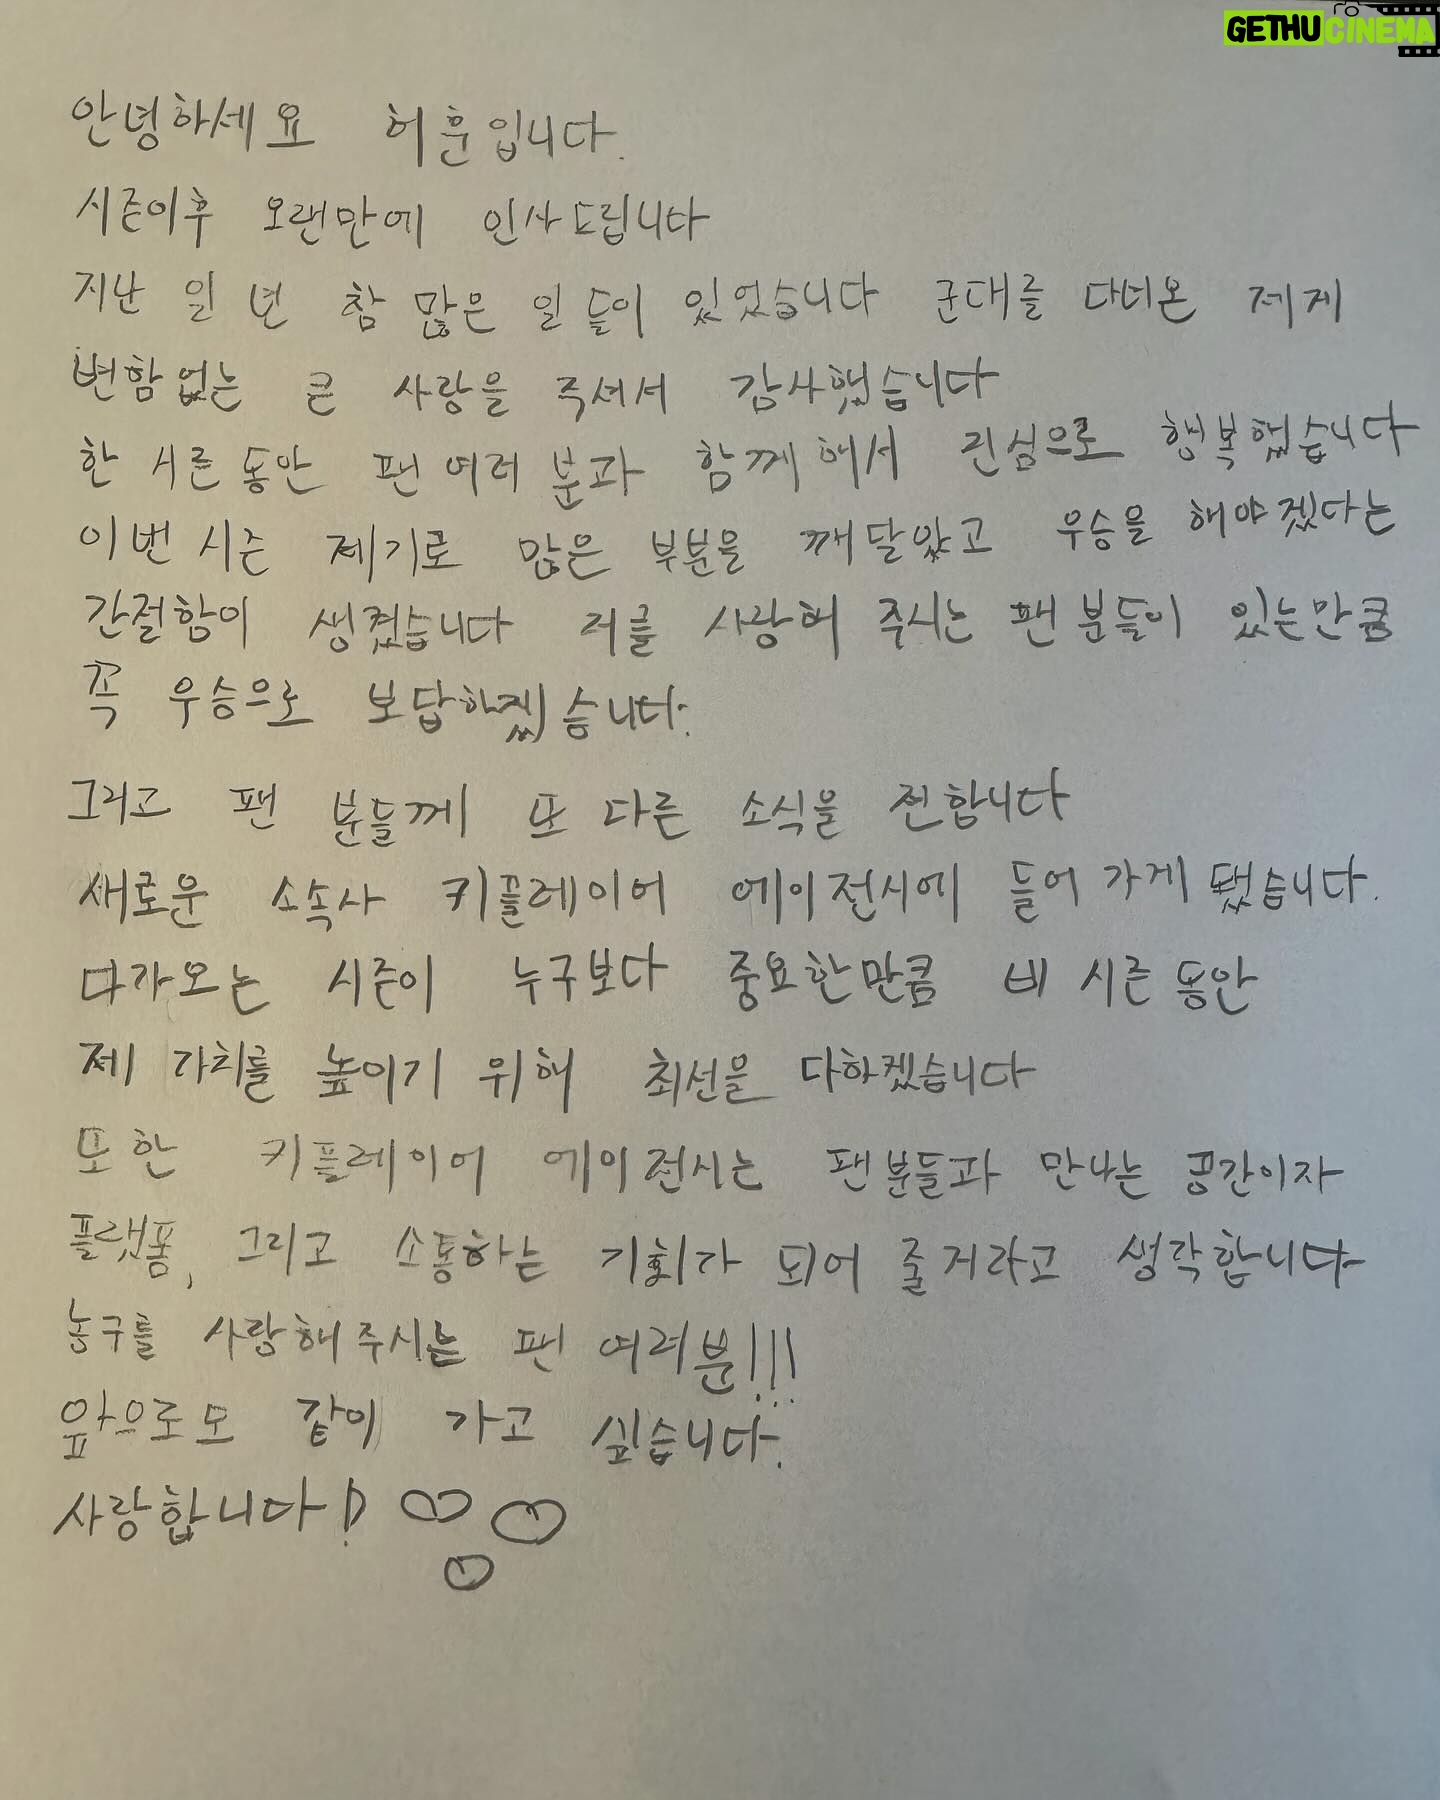 GETHU CINEMA
안녕하세요 허훈입니다.
시즌이후 오랜만에 인사드립니다
지난 일 년 참 많은 일들이 있었습니다 군대를 다녀온 제게
변함없는 큰 사랑을 주셔서 감사했습니다
한 시즌동안 팬 여러분과 함께해서 진심으로 행복했습니다
이번 시즌 계기로 많은 부분을 깨달았고 우승을 해야겠다는
간절함이 생겼습니다 저를 사랑해 주시는 팬분들이 있는만큼
꼭 우승으로 보답하겠습니다.
그리고 팬 분들께 또 다른 소식을 전합니다
새로운 소속사 키플레이어 에이전시에 들어가게 됐습니다.
다가오는 시즌이 누구보다 중요한만큼 비 시즌 동안
제 가치를 높이기 위해 최선을 다하겠습니다
또한 키플레이어 에이전시는 팬분들과 만나는 공간이자
플랫폼, 그리고 소통하는 기회가 되어 줄거라고 생각합니다
농구를 사랑해주시는 팬 여러분!!!
앞으로도 같이 가고 싶습니다.
사랑합니다!